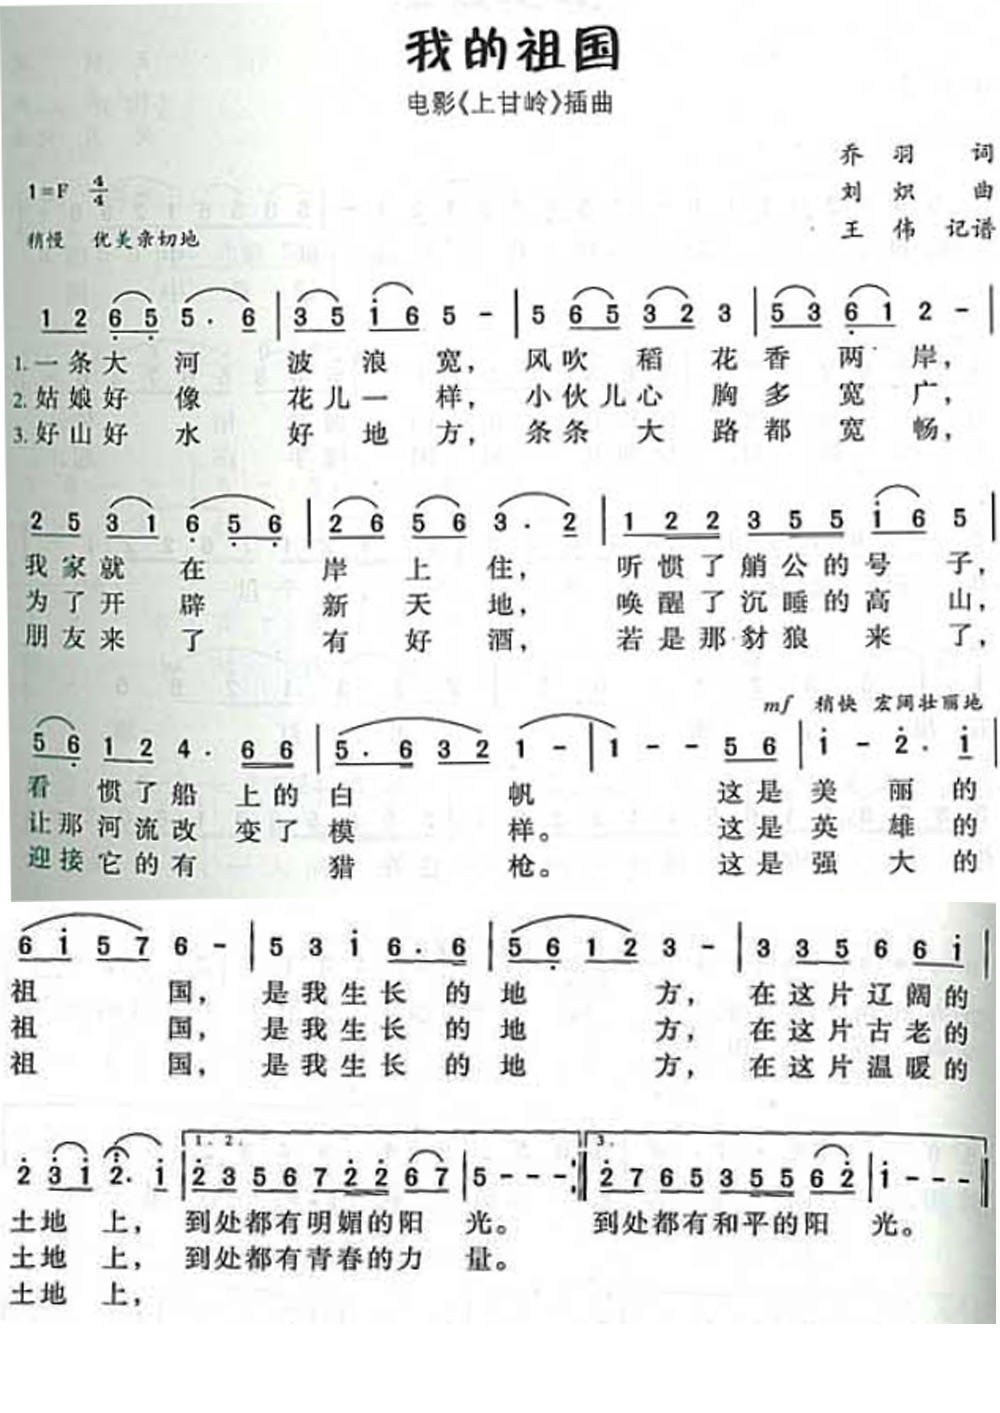 我的祖国
电影《上甘岭》插曲
乔 羽 词
1=F 4/4
刘 炽 曲
稍慢 优美亲切地
王 伟 记谱
1 2 6 5 5 . 6 | 3 5 i 6 5 - | 5 6 5 3 2 3 | 5 3 6 1 2 - |
1.一条大 河 波 浪 宽，风吹 稻 花 香 两 岸，
2.姑娘好 像 花儿一 样，小伙儿心 胸 多 宽 广，
3.好山好 水 好 地 方，条条 大 路 都 宽 畅，
2 5 3 1 6 5 6 | 2 6 5 6 3 . 2 | 1 2 2 3 5 5 i 6 5 |
我家就 在 岸 上 住，听惯了艄公的号 子，
为了开 辟 新 天 地，唤醒了沉睡的高 山，
朋友来 了 有 好 酒，若是那豺狼 来 了，
mf 稍快 宏阔壮丽地
5 6 1 2 4 . 6 6 | 5 . 6 3 2 1 - | 1 - - 5 6 | i - 2 . i |
看 惯了船 上的白 帆 这是美 丽的
让那河流改 变了模 样。 这是英 雄的
迎接它的有 猎 枪。 这是强 大的
6 i 5 7 6 - | 5 3 i 6 . 6 | 5 6 1 2 3 - | 3 3 5 6 6 i |
祖 国，是我生长 的 地 方，在这片辽阔的
祖 国，是我生长 的 地 方，在这片古老的
祖 国，是我生长 的 地 方，在这片温暖的
1. 2. 3.
2 3 i 2 . i | 2 3 5 6 7 2 2 6 7 | 5 - - - :| 2 7 6 5 3 5 5 6 2 | i - - - |
土地 上，到处都有明媚的阳 光。 到处都有和平的阳 光。
土地 上，到处都有青春的力 量。
土地 上，